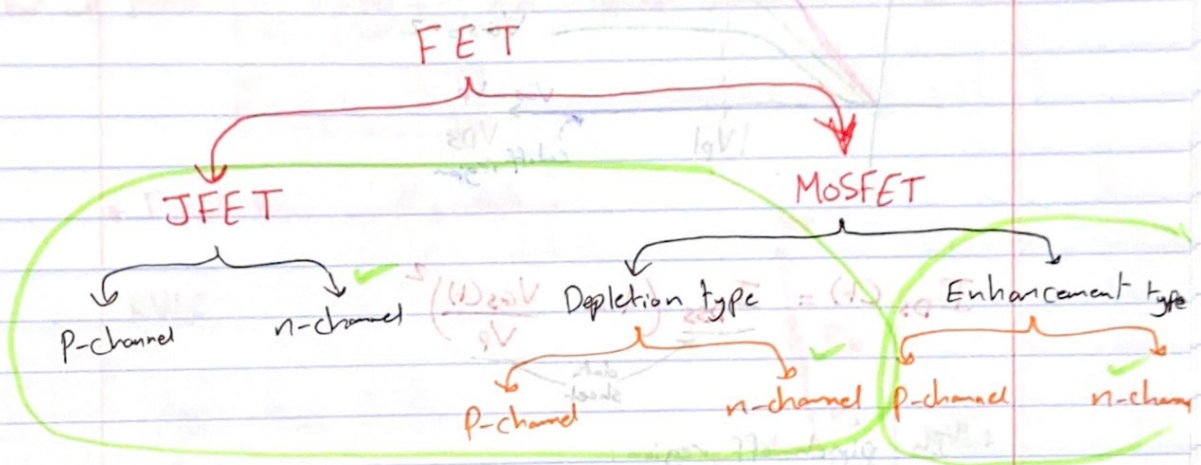 FET
JFET
MOSFET
P-channel
n-channel
Depletion type
Enhancement type
P-channel
n-channel
P-channel
n-chann